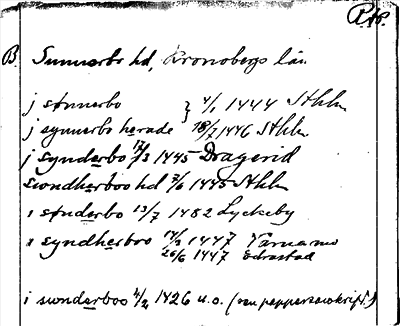 RAp.
B. Sunnerbo hd, Kronobergs län
j sønnerbo } 4/1 1444 Sthlm
j synnerbo herade 18/7 1446 Sthlm
j synderbo 17/3 1445 Dragerid
swndherboo hd 7/6 1445 Sthlm
i sønderbo 13/7 1482 Lyckeby
i syndherboo 14/2 1447 Värnamo
26/6 1447 Edrastad
i swnderboo 4/2 1426 u.o. (ven pappersavskrift)